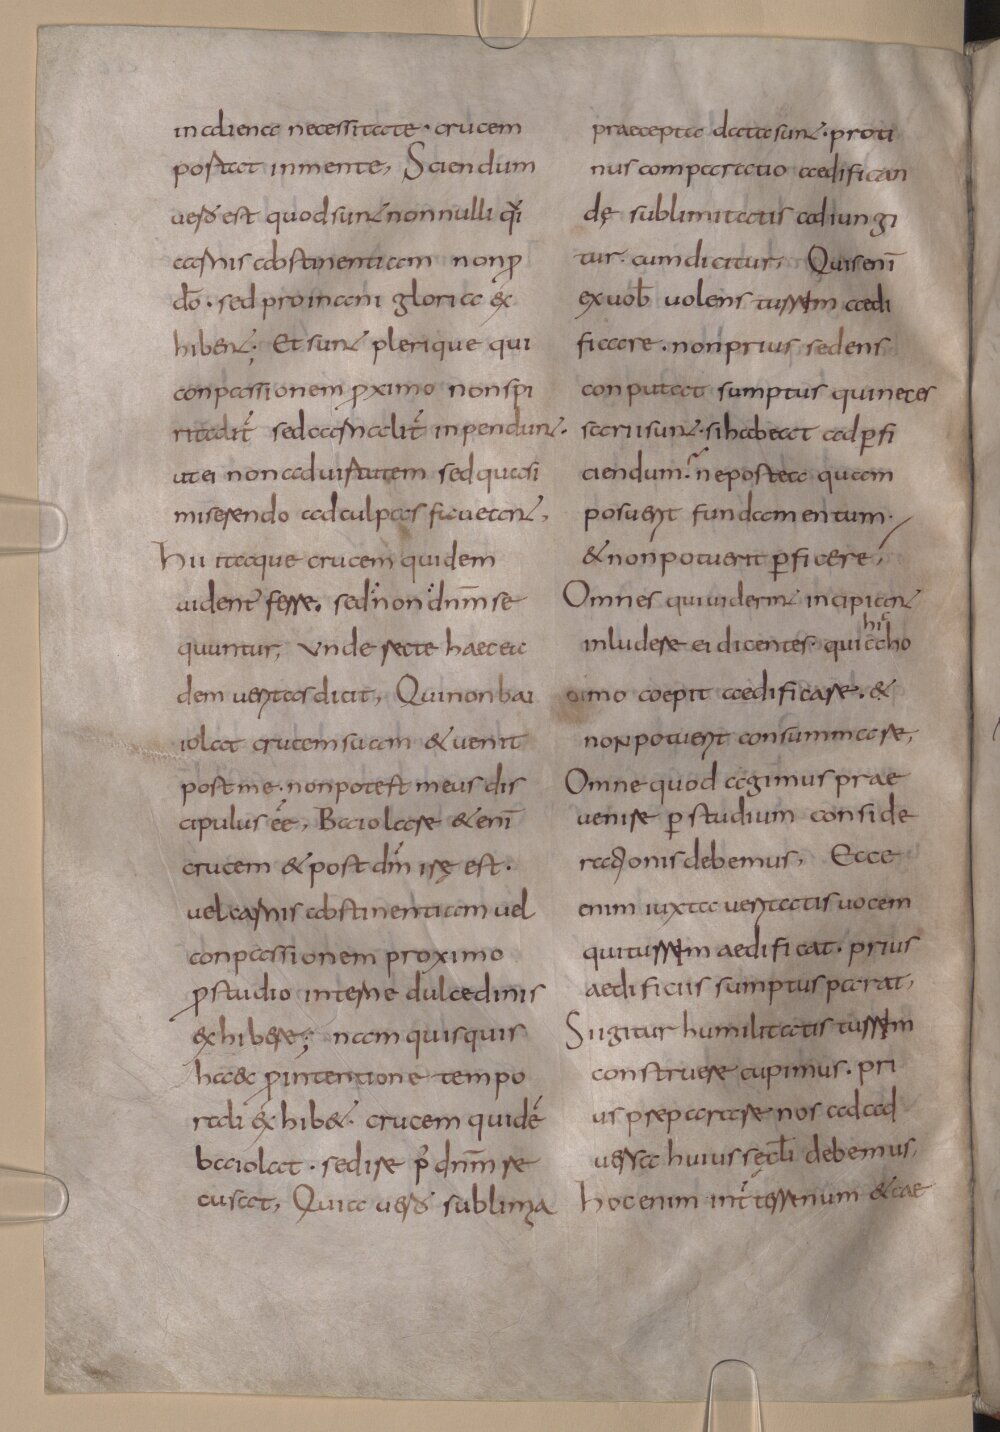 in aliena necessitate · crucem
portat in mente, Sciendum
uero est quod sunt non nulli q̄i
carnis abstinentiam non p̄
dō · sed pro inani gloria ex
hibent · Et sunt plerique qui
conpassionem p̄ximo non spi
ritalit̄ sed carnalit̄ inpendunt ·
ut ei non ad uirtutem sed quasi
miserendo ad culpas faueant,
Hii itaque crucem quidem
uident̄ ferre · sed non dn̄m se
quuntur, Vnde recte haec ea
dem ueritas dicit, Qui non bai
iolat crucem suam & uenit
post me · non potest meus dis
cipulus eē, Baiolare & enī
crucem & post dn̄m irę est ·
uel carnis abstinentiam uel
conpassionem proximo
p̄ studio interne dulcedinis
exhibere; nam quisquis
haec p̄ intentione tempo
rali exhib& · crucem quidē
baiolat · sed ire p̄ dn̄m re
cusat, Quia uero sublimia
praecepta data sunt · proti
nus comparatio aedifican
dę sublimitatis adiungi
tur · cum dicitur, Quis enī
ex uob̄ uolens turrem aedi
ficare · non prius sedens
conputat sumptus qui neces
sarii sunt · si habeat ad p̄fi
ciendum? ne postea quam
posuerit fundamentum ·
& non potuerit p̄ficere,
Omnes qui uidernt incipiant
inludere ei dicentes · quia hic ho
mo coepit aedificare · &
non potuerit consummare,
Omne quod agimus prae
uenire p̄ studium conside
rationis debemus, Ecce
enim iuxta ueritatis uocem
qui turrem aedificat · prius
aedificiis sumptus parat,
Si igitur humilitatis turrem
construere cupimus · pri
us preparare nos ad ad
uersa huius sęcl̄i debemus,
Hoc enim int̄ terrenum & cae